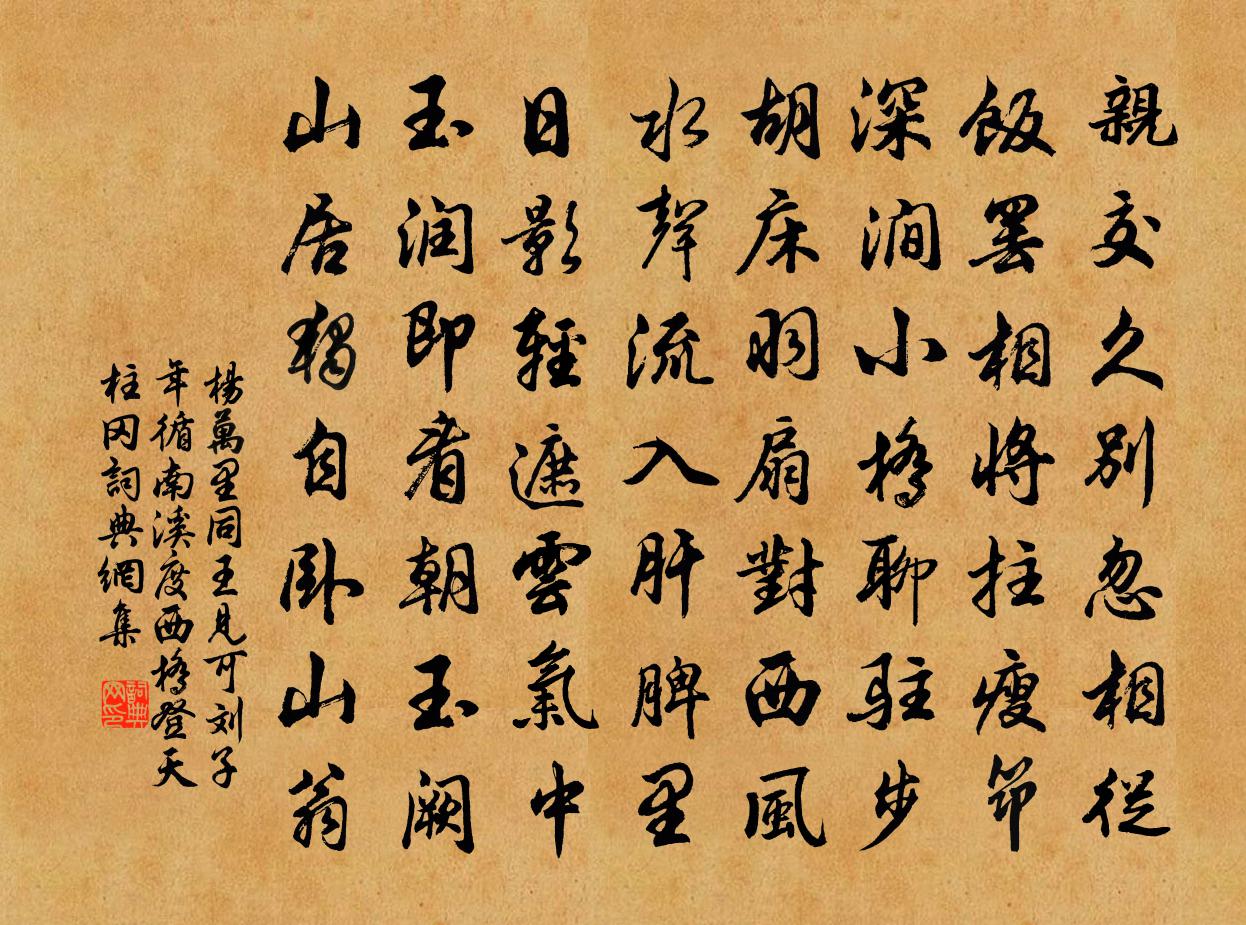 親交久別忽相從
飯罢相將拄瘦筇
深澗小橋聊駐步
胡床羽扇對西風
水聲流入肝脾里
日影輕遮雲氣中
玉润即看朝玉阙
山居獨自卧山翁
楊萬里同王見可刘子
年循南溪度西橋登天
柱冈詞典網集
詞典
网印